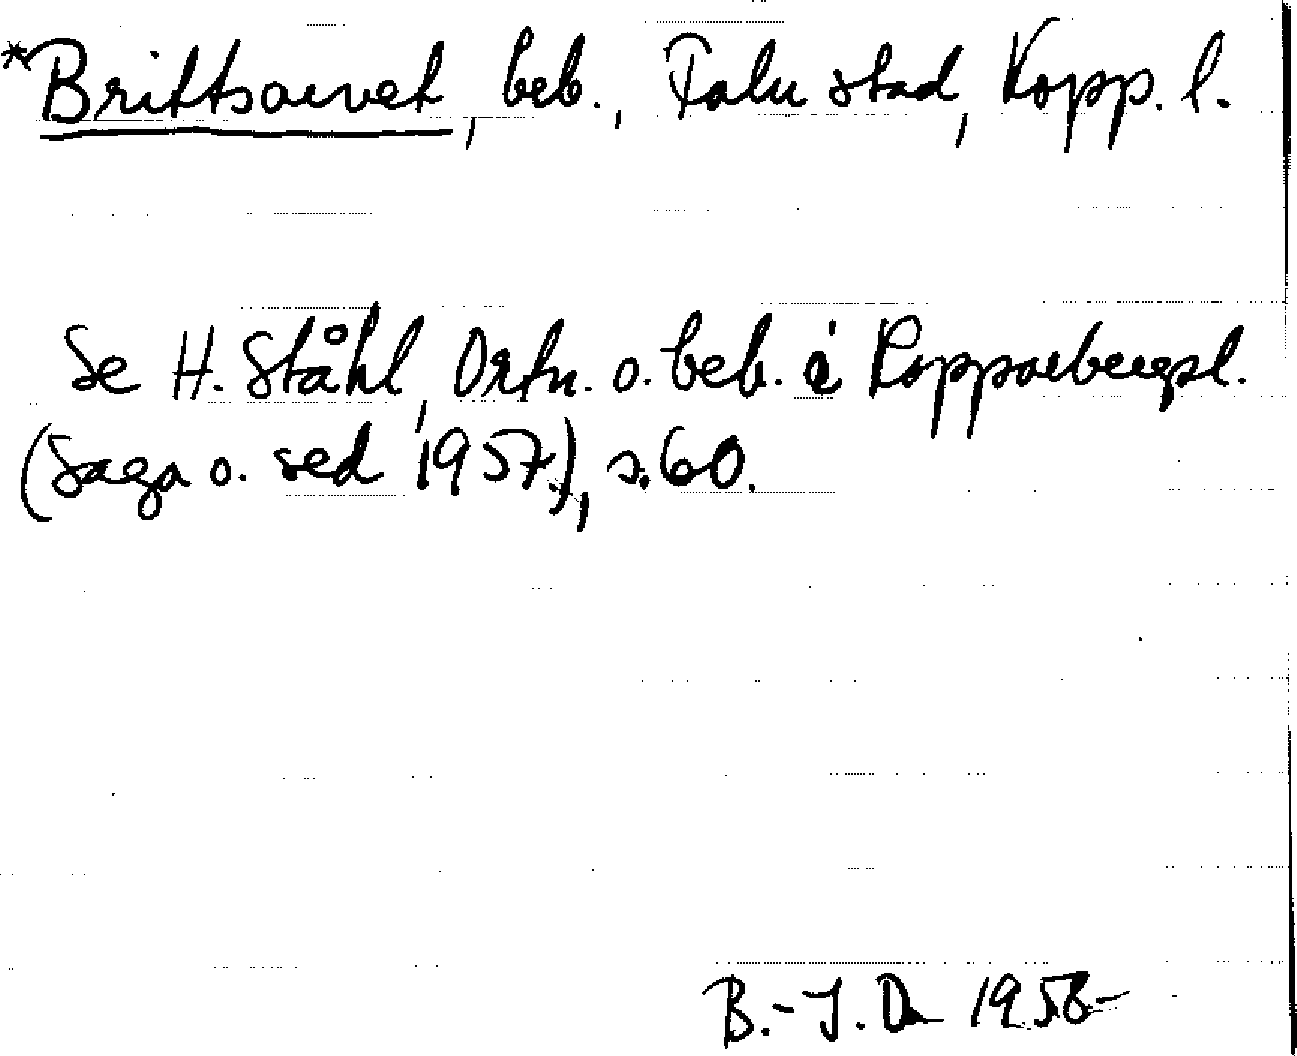 *Brittsarvet, beb., Falu stad, Kopp. l.
Se H. Ståhl, Ortn. o. beb. i Kopparbergsl.
(Saga o. sed 1957), s. 60.
B.-J. D 1958